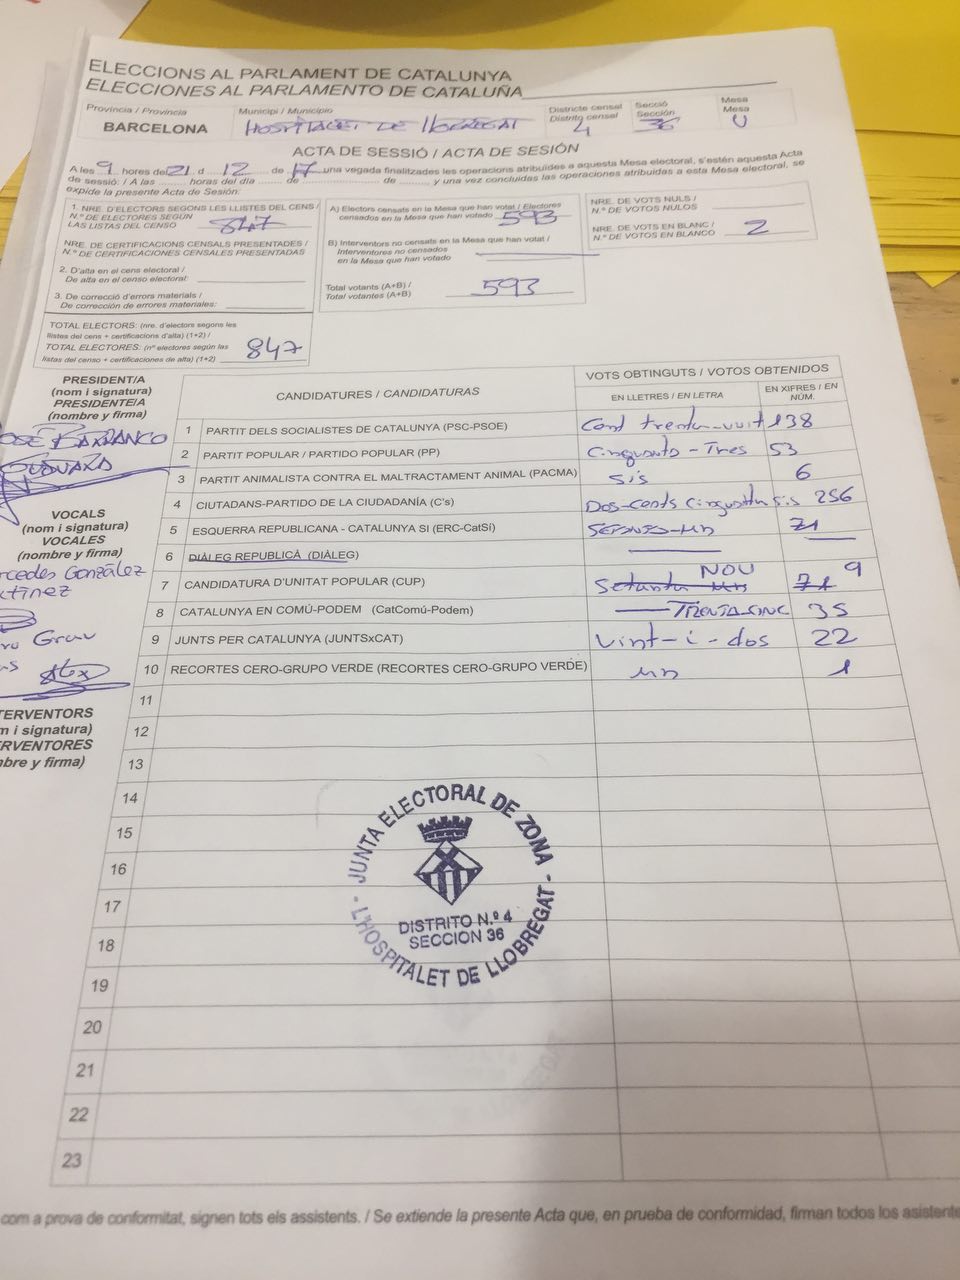 ELECCIONS AL PARLAMENT DE CATALUNYA
ELECCIONES AL PARLAMENTO DE CATALUÑA
Província / Provincia
BARCELONA
Municipi / Municipio
HOSPITALET DE LLOBREGAT
Districte censal
Distrito censal
4
Secció
Sección
36
Mesa
Mesa
U
ACTA DE SESSIÓ / ACTA DE SESIÓN
A les 9 hores del 21 d 12 de 17 una vegada finalitzades les operacions atribuïdes a aquesta Mesa electoral, s'estén aquesta Acta
de sessió: / A las ........ horas del día ........ de ........ de ........ y una vez concluidas las operaciones atribuidas a esta Mesa electoral, se
expide la presente Acta de Sesión:
1. NRE. D'ELECTORS SEGONS LES LLISTES DEL CENS /
N.º DE ELECTORES SEGÚN
LAS LISTAS DEL CENSO 847
NRE. DE CERTIFICACIONS CENSALS PRESENTADES /
N.º DE CERTIFICACIONES CENSALES PRESENTADAS
2. D'alta en el cens electoral /
De alta en el censo electoral:
3. De correcció d'errors materials /
De corrección de errores materiales:
TOTAL ELECTORS: (nre. d'electors segons les
llistes del cens + certificacions d'alta) (1+2) /
TOTAL ELECTORES: (nº electores según las
listas del censo + certificaciones de alta) (1+2) 847
A) Electors censats en la Mesa que han votat / Electores
censados en la Mesa que han votado 593
B) Interventors no censats en la Mesa que han votat /
Interventores no censados
en la Mesa que han votado
Total votants (A+B) /
Total votantes (A+B) 593
NRE. DE VOTS NULS /
N.º DE VOTOS NULOS
NRE. DE VOTS EN BLANC /
N.º DE VOTOS EN BLANCO 2
PRESIDENT/A
(nom i signatura)
PRESIDENTE/A
(nombre y firma)
OSÉ BARRANCO
VOCALS
(nom i signatura)
VOCALES
(nombre y firma)
rcedes González
rtínez
Grau
Alex
TERVENTORS
m i signatura)
ERVENTORES
mbre y firma)
CANDIDATURES / CANDIDATURAS
VOTS OBTINGUTS / VOTOS OBTENIDOS
EN LLETRES / EN LETRA
EN XIFRES / EN
NÚM.
1 PARTIT DELS SOCIALISTES DE CATALUNYA (PSC-PSOE) Cent trenta-vuit 138
2 PARTIT POPULAR / PARTIDO POPULAR (PP) Cinquanta-Tres 53
3 PARTIT ANIMALISTA CONTRA EL MALTRACTAMENT ANIMAL (PACMA) Sis 6
4 CIUTADANS-PARTIDO DE LA CIUDADANÍA (C's) Dos-cents cinquanta sis 256
5 ESQUERRA REPUBLICANA - CATALUNYA SI (ERC-CatSí) SETANTA-un 71
6 DIÀLEG REPUBLICÀ (DIÀLEG)
7 CANDIDATURA D'UNITAT POPULAR (CUP) Setanta un NOU 71 9
8 CATALUNYA EN COMÚ-PODEM (CatComú-Podem) TRENTA-CINC 35
9 JUNTS PER CATALUNYA (JUNTSxCAT) Vint-i-dos 22
10 RECORTES CERO-GRUPO VERDE (RECORTES CERO-GRUPO VERDE) un 1
11
12
13
14
15
16
17
18
19
20
21
22
23
JUNTA ELECTORAL DE ZONA
DISTRITO N.º 4
SECCION 36
- L'HOSPITALET DE LLOBREGAT -
com a prova de conformitat, signen tots els assistents. / Se extiende la presente Acta que, en prueba de conformidad, firman todos los asistente